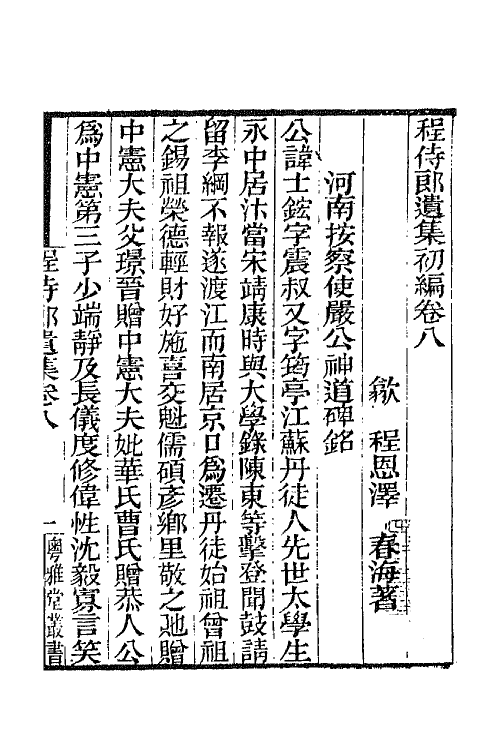 程侍郎遺集初編卷八
歙 程恩澤 春海著
河南按察使嚴公神道碑銘
公諱士鋐字震叔又字筠亭江蘇丹徒人先世太學生
永中居汴當宋靖康時與大學錄陳東等擊登聞鼓請
留李綱不報遂渡江而南居京口為遷丹徒始祖曾祖
之錫祖榮德輕財好施喜交魁儒碩彥鄉里敬之貤贈
中憲大夫父璟晉贈中憲大夫妣華氏曹氏贈恭人公
為中憲第三子少端靜及長儀度修偉性沈毅寡言笑
程侍郎遺集卷八 一 粵雅堂叢書